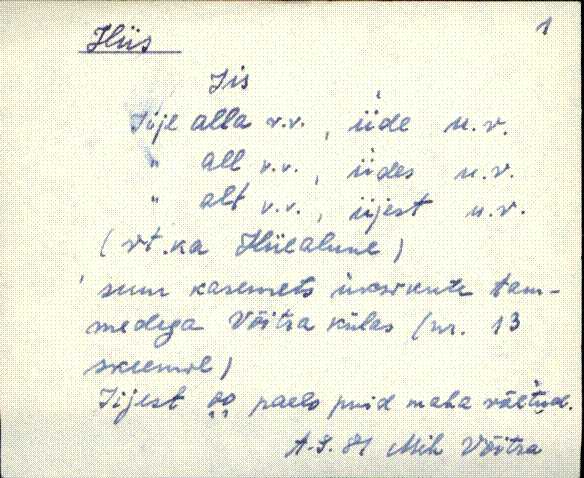 1
Hiis
Iis
Iije alla v.v., iide u.v.
" all v.v., iides u.v.
" alt v.v., iijest u.v.
(vt. ka Hiiealune)
suur kasemets üksikute tam-
medega Võitra külas (nr. 13
skeemil)
Iijest oo palo puid maha võetud.
A.S. 81 Mih Võitra